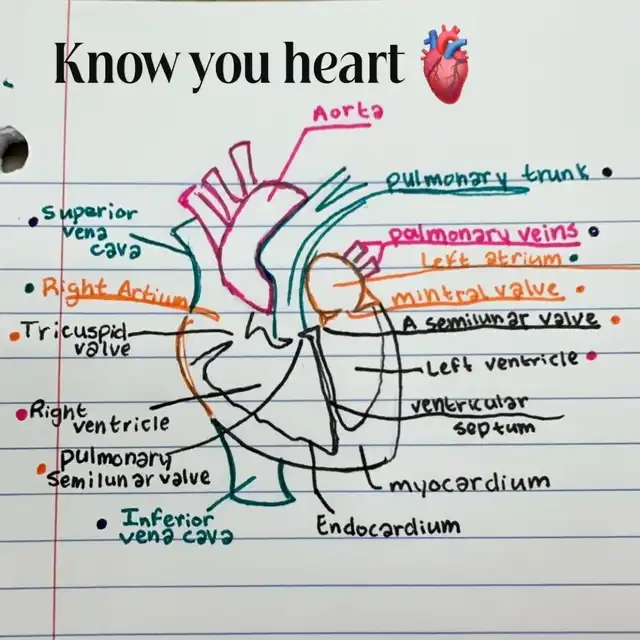 Know you heart
Aorta
pulmonary trunk
Superior
vena
cava
pulmonary veins
Left atrium
Right Artium
mintral valve
Tricuspid
valve
A semilunar valve
Left ventricle
Right
ventricle
ventricular
septum
pulmonary
semilunar valve
myocardium
Inferior
vena cava
Endocardium